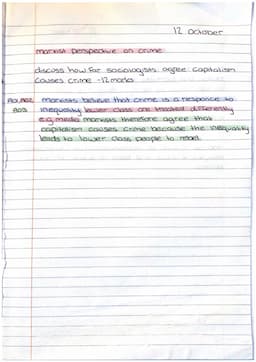 12 October
marxist perspective on crime
discuss how far sociologists agree capitalism
causes crime - 12 marks
AO1, AO2 marxists believe that crime is a responce to
AO3 inequality lower class are treated differently
e.g media marxists therefore agree that
capitalism causes crime because the inequality
leads to lower class people to rebel.